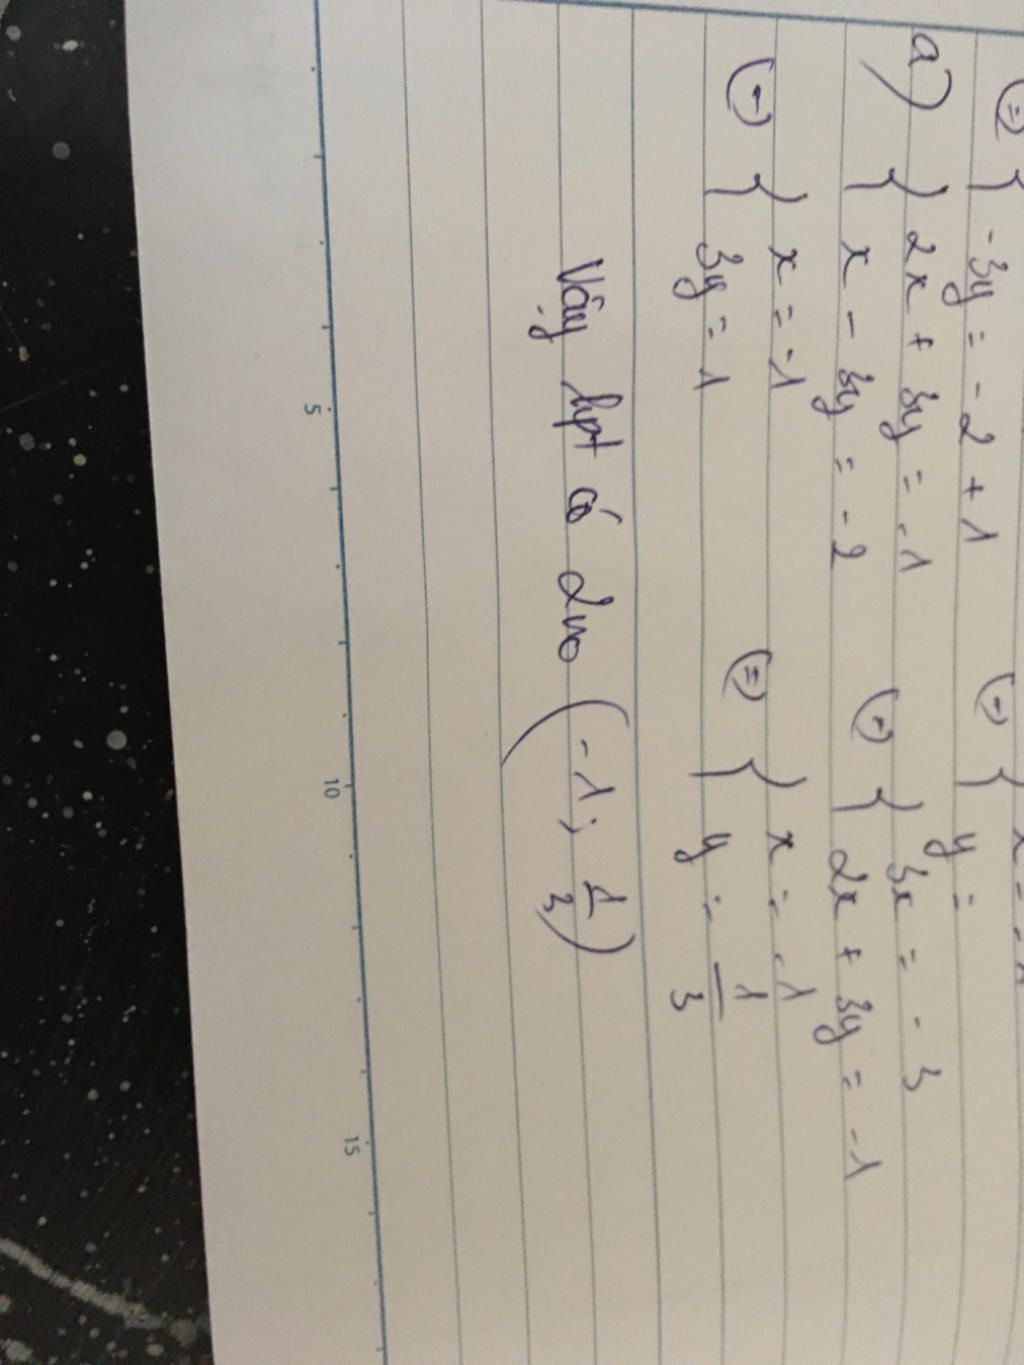 ⇔ { -3y = -2 + 1 ⇔ { y =
a) { 2x + 3y = -1 ⇔ { 3x = -3
x - 3y = -2 2x + 3y = -1
⇔ { x = -1 ⇔ { x = -1
3y = 1 y = 1/3
Vậy hpt có 2no (-1; 1/3)
5 10 15